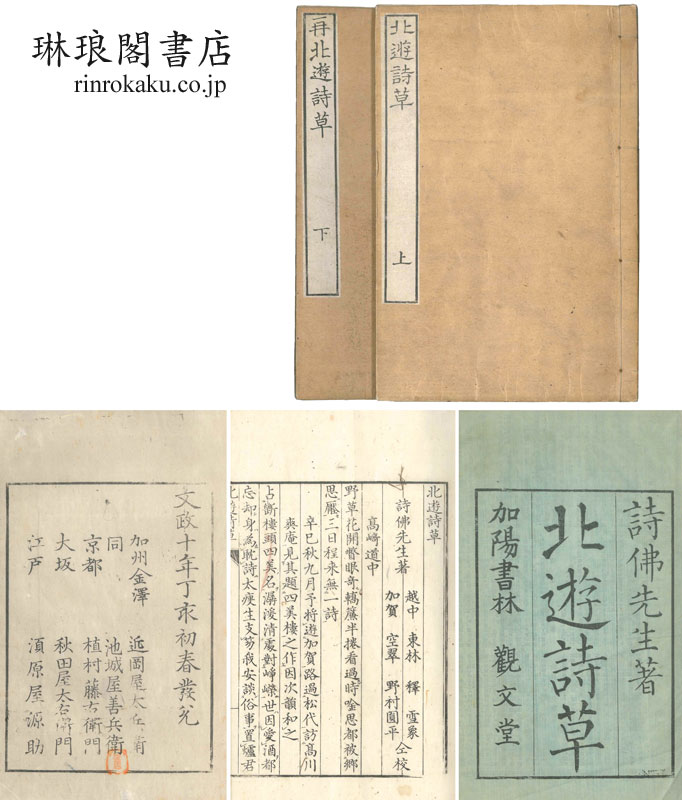 琳琅閣書店
rinrokaku.co.jp
北遊詩草 上
再北遊詩草 下
詩佛先生著
北遊詩草
加陽書林 觀文堂
北遊詩草
詩佛先生著
越中 東林 釋 雲象
加賀 空翠 野村圓平
仝校
髙﨑道中
野草花開瞥眼奇轎簾半捲看過時唫思都被鄉
思壓三日程来無一詩
辛巳秋九月予将遊加賀路過松代訪髙川
爽庵見其題四美樓之作因次韻和之
占断樓頭四美名潺湲清處對崢嶸世因愛酒都
忘却身為耽詩太瘦生支笏安談俗事置壚君
文政十年丁亥初春發兌
加州金澤 近岡屋太左衛門
同 池城屋善兵衛
京都 植村藤右衛門
大坂 秋田屋太右衛門
江戸 須原屋源助